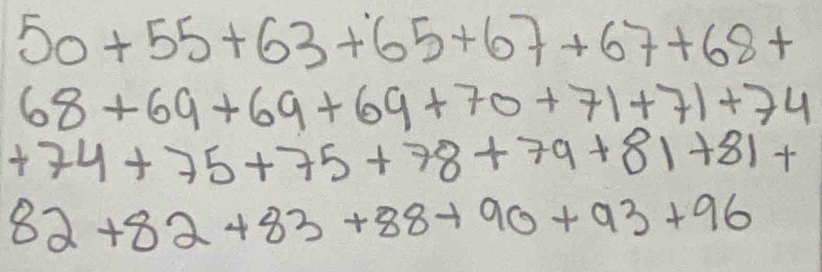 50+55+63+65+67+67+68+
68+69+69+69+70+71+71+74
+74+75+75+78+79+81+81+
82+82+83+88+90+93+96